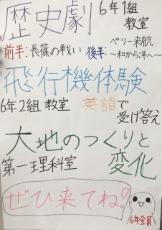 歴史劇 6年1組 教室
前半:長篠の戦い 後半:ペリー来航
〜和から洋へ〜
飛行機体験
6年2組 教室 英語で受け答え
大地のつくりと変化
第一理科室
ぜひ来てね!
6年全員